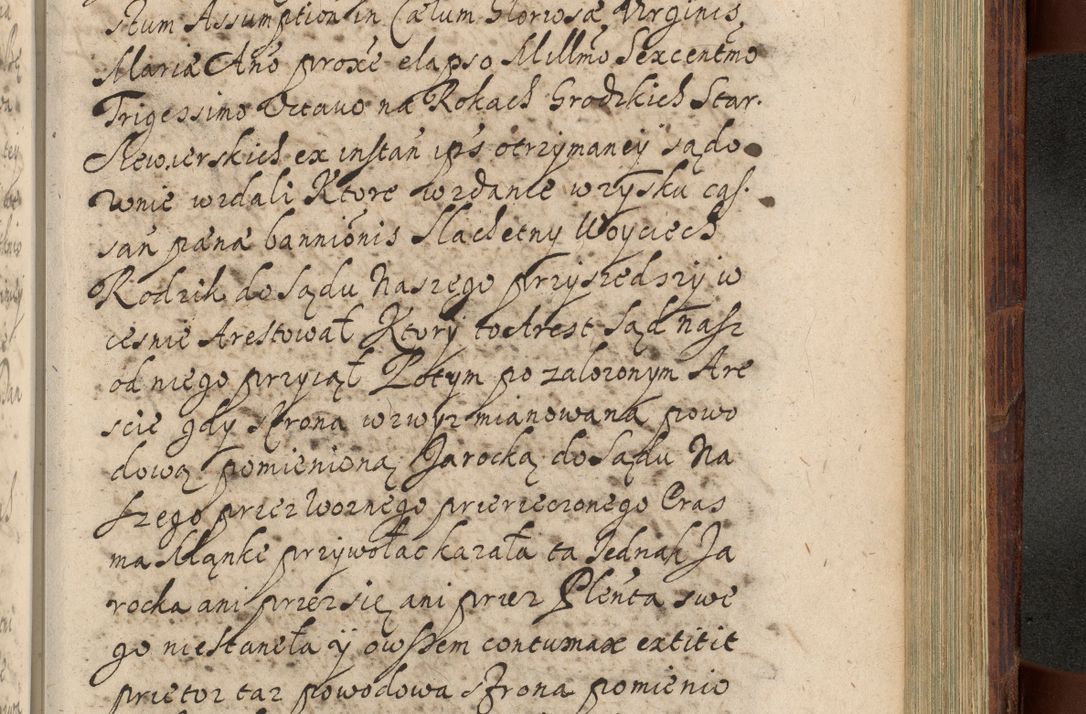 stum Assumption in Cælum Gloriosæ Virginis
Mariæ Año proxe elapso Millmo Sexcentmo
Trigessimo Octavo na Rokach Grodzkich Star.
ex instañ ips otrzymaney sądo
wnie wzdali Ktore wzdanie wzysku cas
sañ pœna bannionis Slachetny Woyciech
Rodzik do Sądu Naszego przyszedszy w
cesnie Arestował Ktory to Arest Sąd nasz
od niego przyiął Potym po załozonym Are
scie gdy Strona wzwyz mianowana powo
dowa pomienioną Jarocką do Sądu Na
szego przez Woznego przerzeczonego Eras
ma Mąnke przywołac kazała ta Jednak Ja
rocka ani przez się ani przez Pleñta swe
go niestaneła y owszem contumax extitit
przetoz taz powodowa strona pomienio